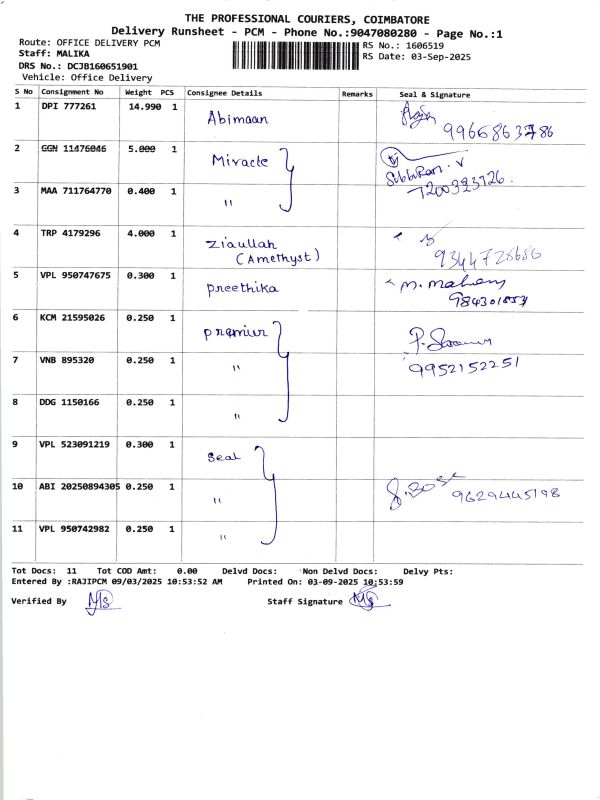 THE PROFESSIONAL COURIERS, COIMBATORE
Delivery Runsheet - PCM - Phone No.:9047080280 - Page No.:1
Route: OFFICE DELIVERY PCM
Staff: MALIKA
DRS No.: DCJB160651901
Vehicle: Office Delivery
RS No.: 1606519
RS Date: 03-Sep-2025
S No Consignment No Weight PCS Consignee Details Remarks Seal & Signature
1 DPI 777261 14.990 1 Abimaan
2 GGN 11476046 5.000 1 Miracle
3 MAA 711764770 0.400 1 "
7200323126.
4 TRP 4179296 4.000 1 Ziaullah
(Amethyst)
9344728686
5 VPL 950747675 0.300 1 preethika
6 KCM 21595026 0.250 1 premiur
7 VNB 895320 0.250 1 " 9952152251
8 DDG 1150166 0.250 1 "
9 VPL 523091219 0.300 1 Seal
10 ABI 20250894305 0.250 1 " 9629445198
11 VPL 950742982 0.250 1 "
Tot Docs: 11 Tot COD Amt: 0.00 Delvd Docs: Non Delvd Docs: Delvy Pts:
Entered By :RAJIPCM 09/03/2025 10:53:52 AM Printed On: 03-09-2025 10:53:59
Verified By Staff Signature